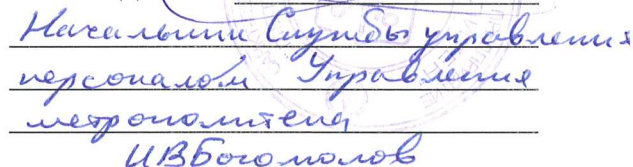 Начальник Службы управления
персоналом Управления
метрополитена
И.В.Богомолов